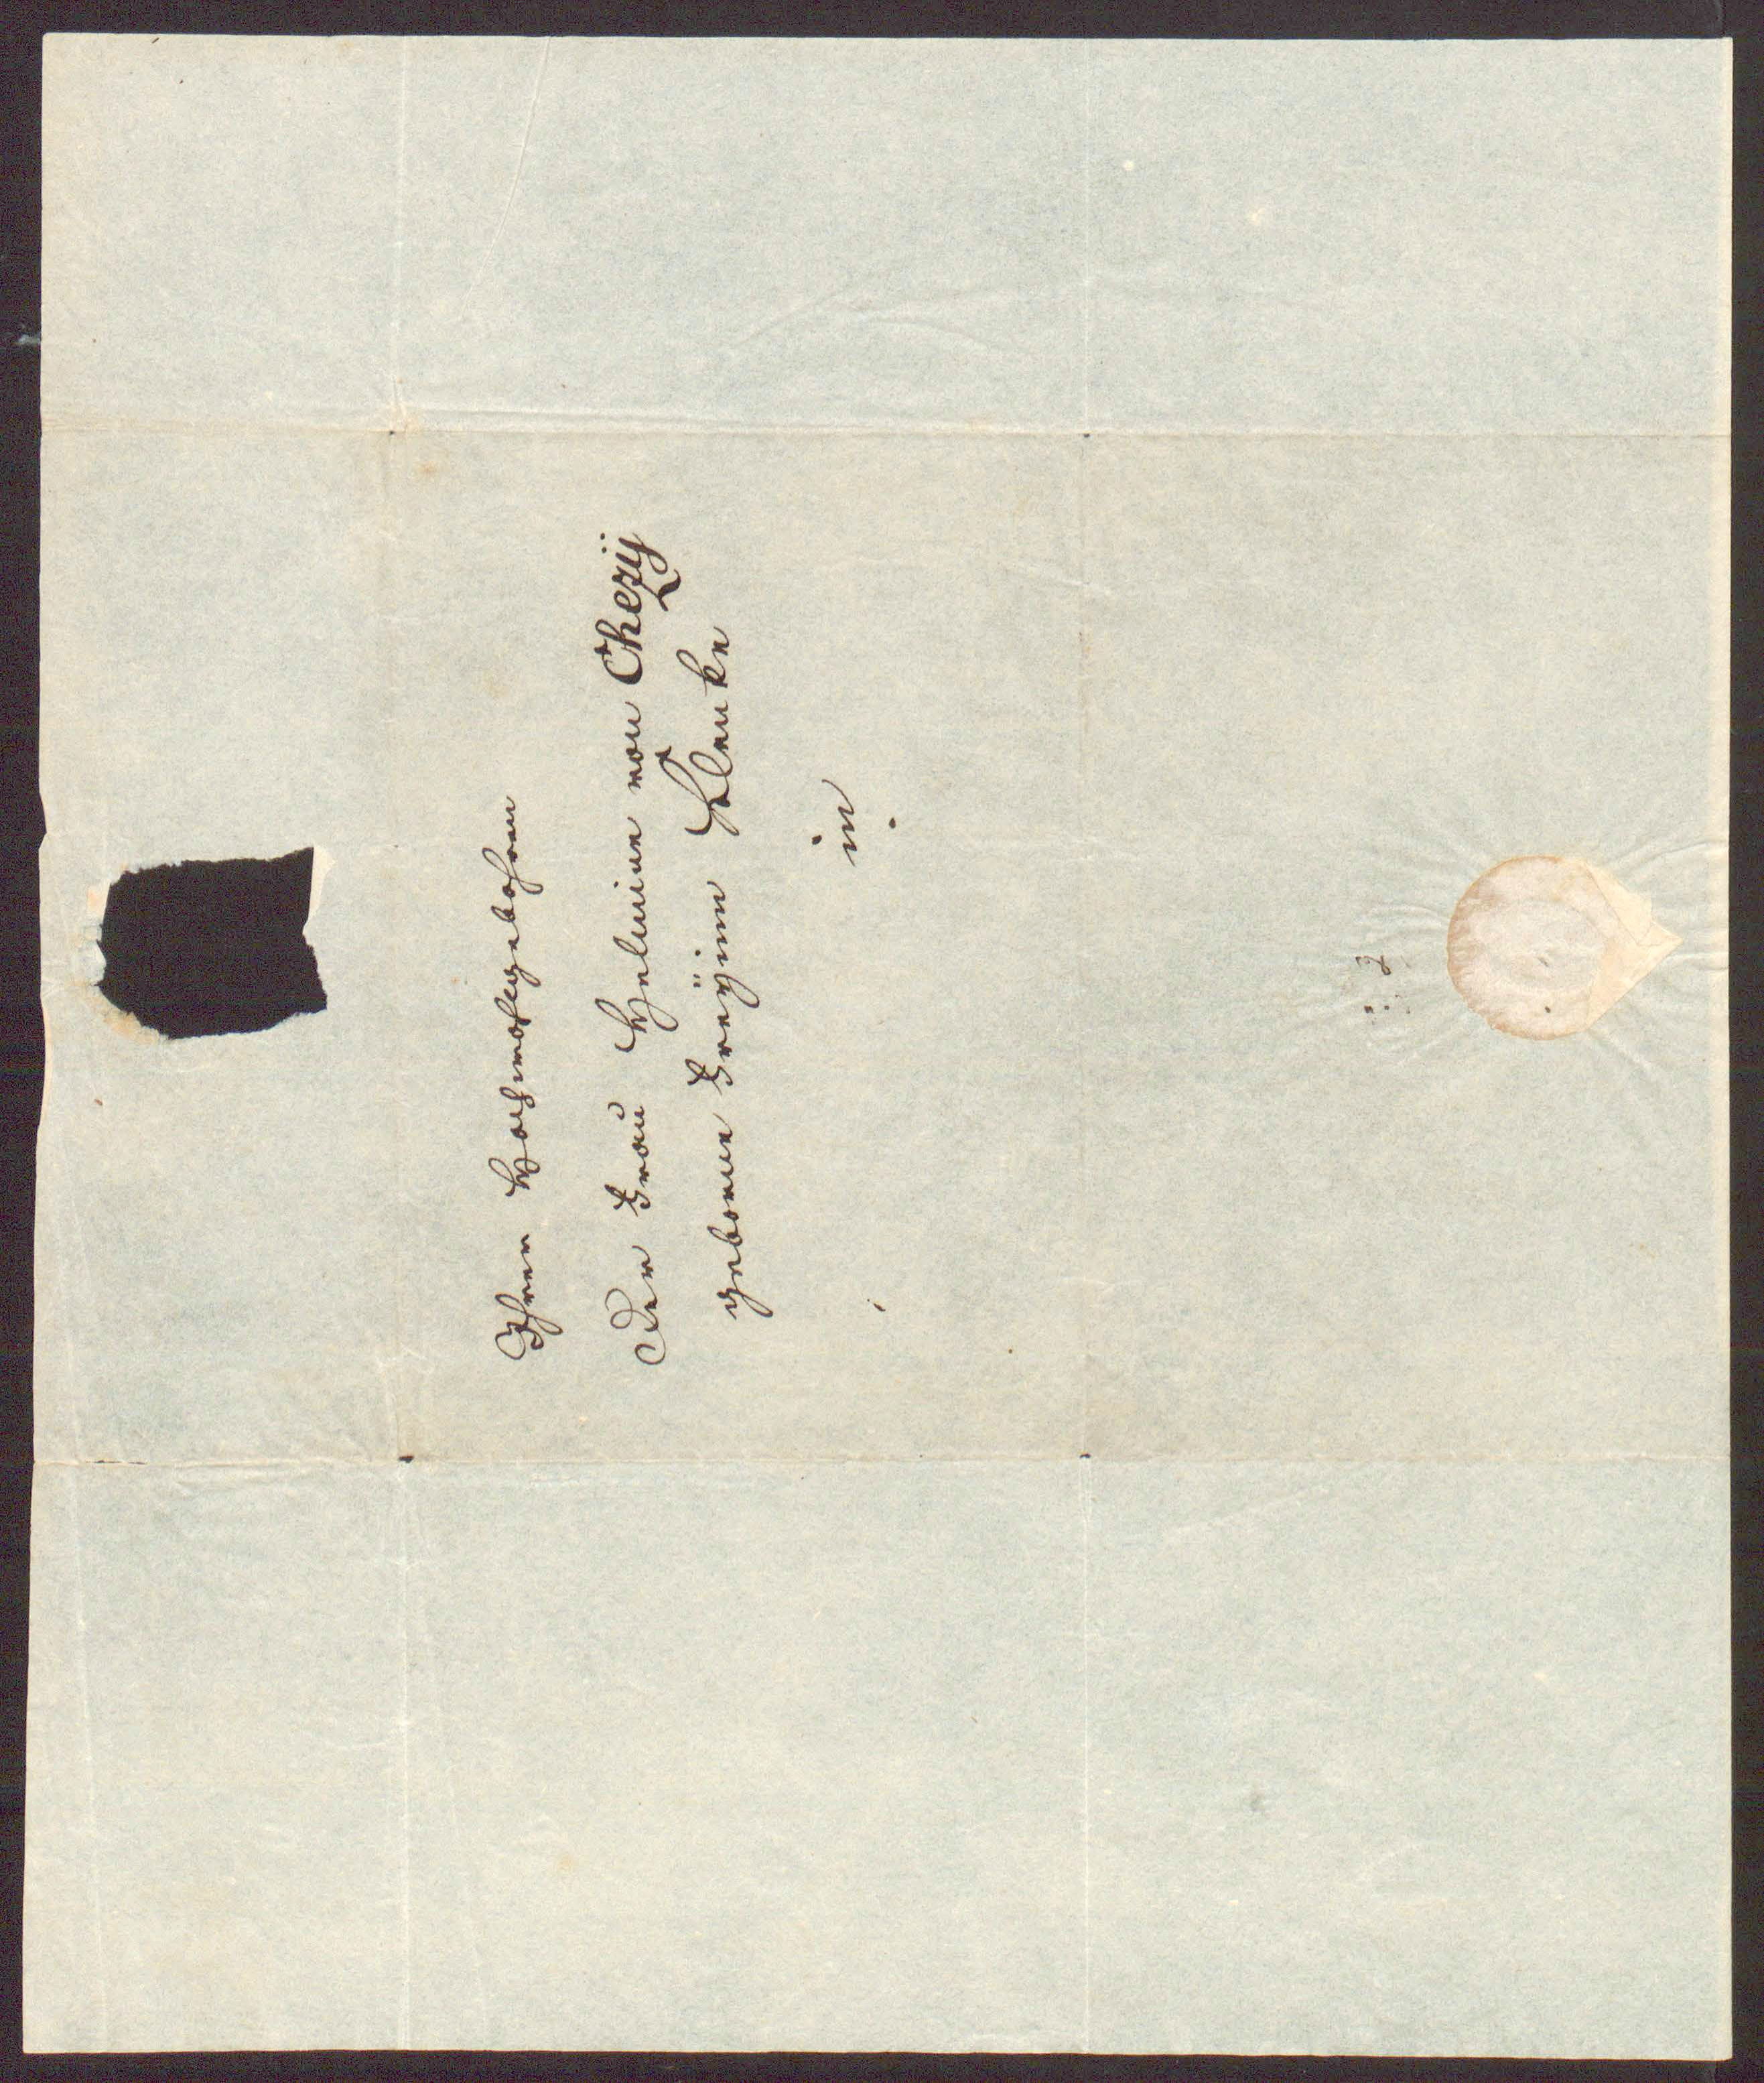 Ihrer Hochwohlgebohren
Der Frau Helmine von Chezÿ
geborne Freÿinn Klenke
in